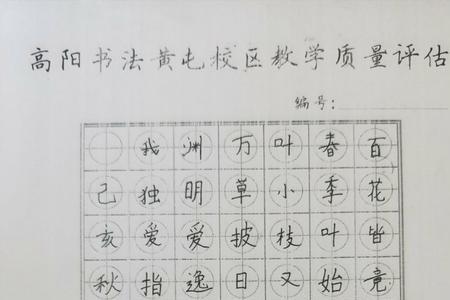 高阳书法黄屯校区教学质量评估
编号:
百花皆竟
春季叶始
叶小枝又
万草披日
渊明爱逸
我独爱指
己亥秋